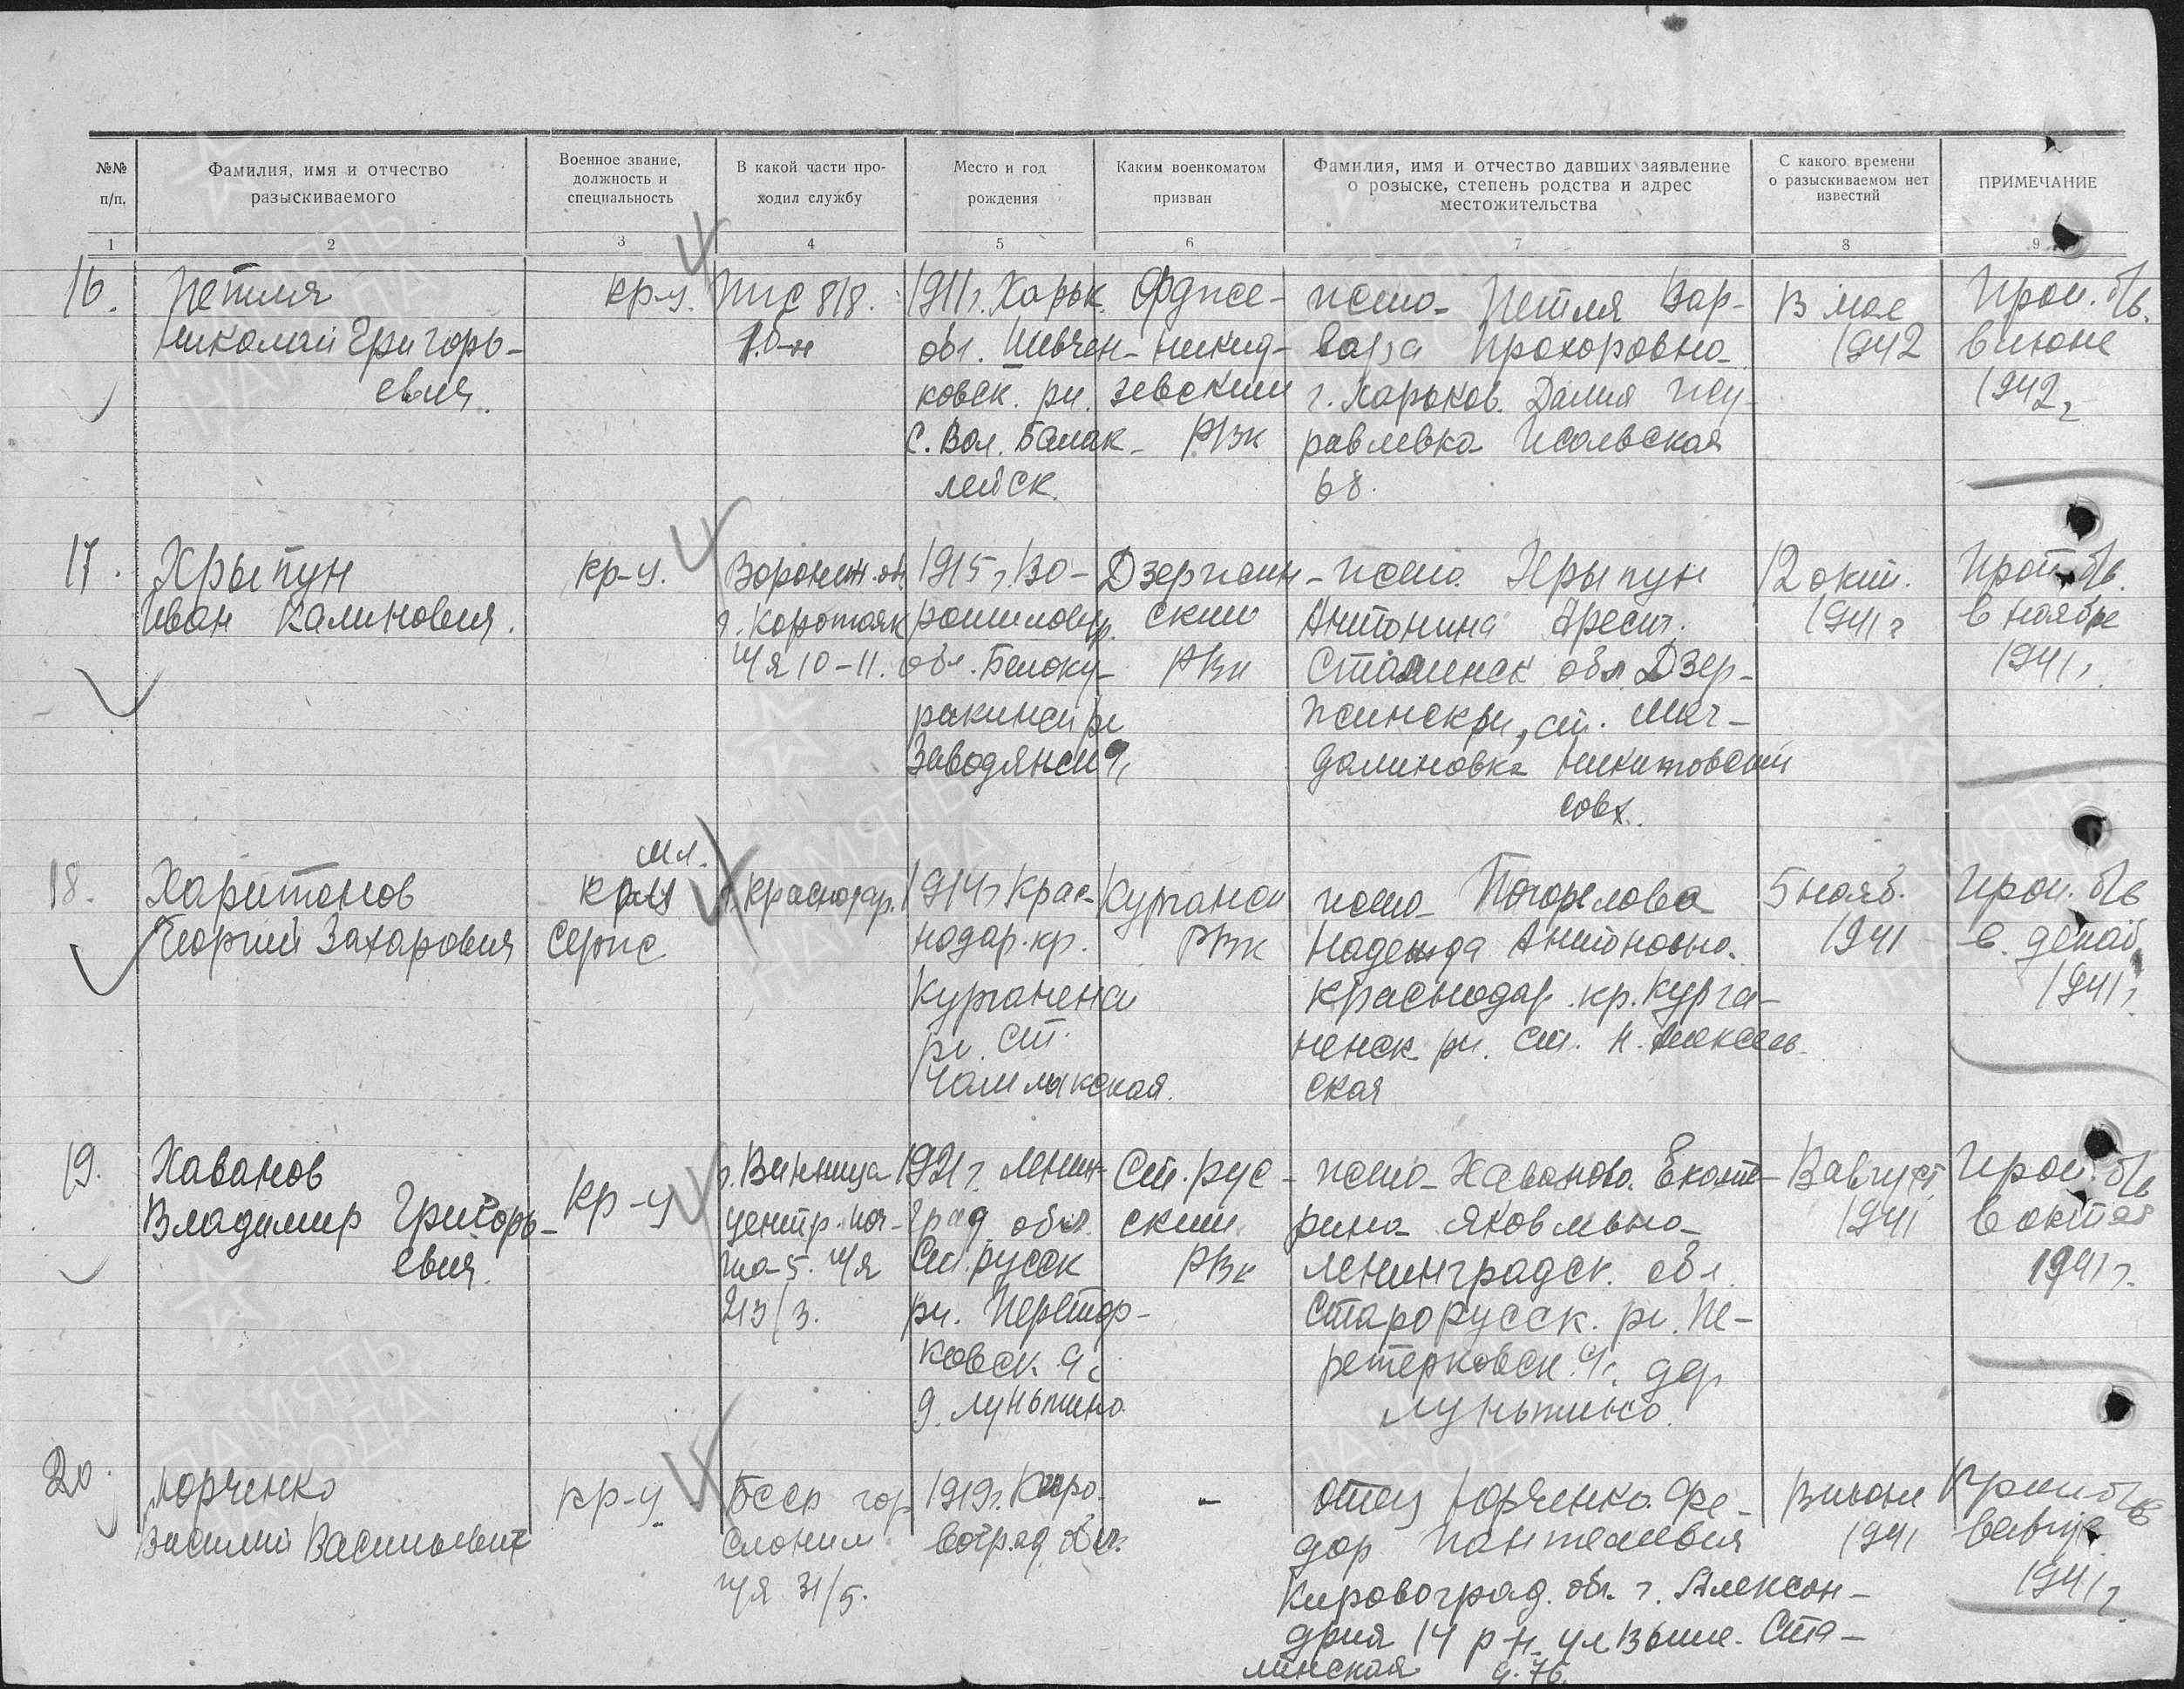 №№ п/п.
Фамилия, имя и отчество
разыскиваемого
Военное звание,
должность и
специальность
В какой части про-
ходил службу
Место и год
рождения
Каким военкоматом
призван
Фамилия, имя и отчество давших заявление
о розыске, степень родства и адрес
местожительства
С какого времени
о разыскиваемом нет
известий
ПРИМЕЧАНИЕ
1 2 3 4 5 6 7 8 9
16.
Петля
Николай Григорь-
евич.
кр-ц.
ппс 818.
1911г. Харьк.
обл. Шевчен-
ковск. рн.
с. Вол. Балак-
лейск.
Орджо-
никид-
зевским
РВК
жена- Петля Вар-
вара Прохоровна
г. Харьков. Далия Жу-
равлевка
68.
В мае
1942
Проп. б/в.
в июне
1942г
17.
Хрыпун
Иван Калинович.
кр-ц.
Воронеж. обл.
г. Коротояк
п/я 10-11.
1915г. Во-
рошиловгр.
обл. Белоку-
ракинск рн
Заводянск с/с
Дзержин-
ским
РВК
жена Хрыпун
Антонина
Сталинск обл. Дзер-
жинск рн, ст. Маг-
далиновка Никитовский
совх.
12 окт.
1941г
Проп. б/в.
в ноябре
1941г.
18.
Харитонов
Георгий Захарович
мл.
серж
г. Краснодар.
1914г Крас-
нодар. кр.
Курганенск
рн. ст.
Чамлыкская.
Курганск
РВК
жена Погорелова
Надежда Антоновна.
Краснодар. кр. Курга-
ненск рн. ст. Н. Алексеев-
ская
5 нояб.
1941
Проп. б/в
в. декаб.
1941г.
19.
Хаванов
Владимир Григорь-
евич.
кр-ц
г. Винница
центр. поч-
та 5. п/я
213/3.
1921г. Ленин-
град. обл.
Ст. русск
рн. Перетер-
ковск. с/с
д. Луньшино
Ст. рус-
ским
РВК
жена- Хаванова Екате-
рина Яковлевна-
Ленинградск. обл.
Старорусск. рн. Пе-
ретерковск. с/с. дер
Луньшино.
В август
1941
Проп. б/в
в октяб
1941г.
20.
Юрченко
Василий Васильевич
кр-ц
БССР гор
Слоним
п/я 31/5.
1919г. Киро-
воград. обл.
-
отец Юрченко Фе-
дор Пантелевич
Кировоград. обл. г. Алексан-
дрия 14 р-н. ул Выше-Ста-
линская д. 76.
В июне
1941
Проп б/в
в авгус.
1941г.
ПАМЯТЬ
НАРОДА